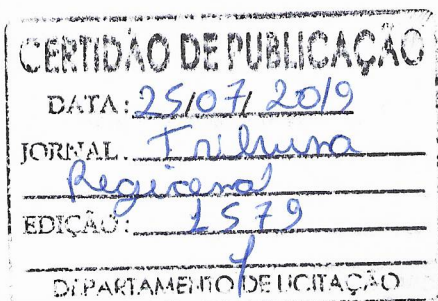 CERTIDÃO DE PUBLICAÇÃO
DATA: 25/07/2019
JORNAL: Tribuna
Regional
EDIÇÃO: 1579
DEPARTAMENTO DE LICITAÇÃO